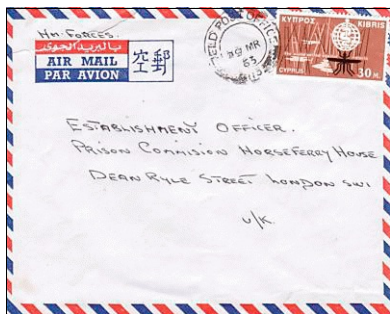 HM. FORCES.
بالبريد الجوي
AIR MAIL
PAR AVION
空郵
FIELD POST OFFICE
MR
63
ΚΥΠΡΟΣ KIBRIS
CYPRUS 30 M.
ESTABLISHMENT OFFICER.
PRISON COMMISION HORSEFERRY HOUSE
DEAN RYLE STREET LONDON SW1
U/K